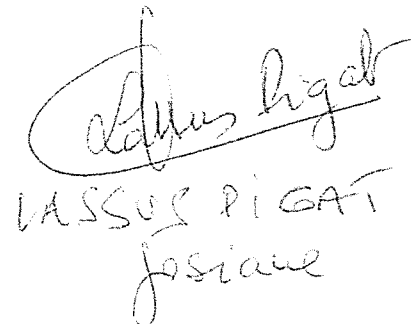 Lassus Pigat
LASSUS PIGAT
Josiane